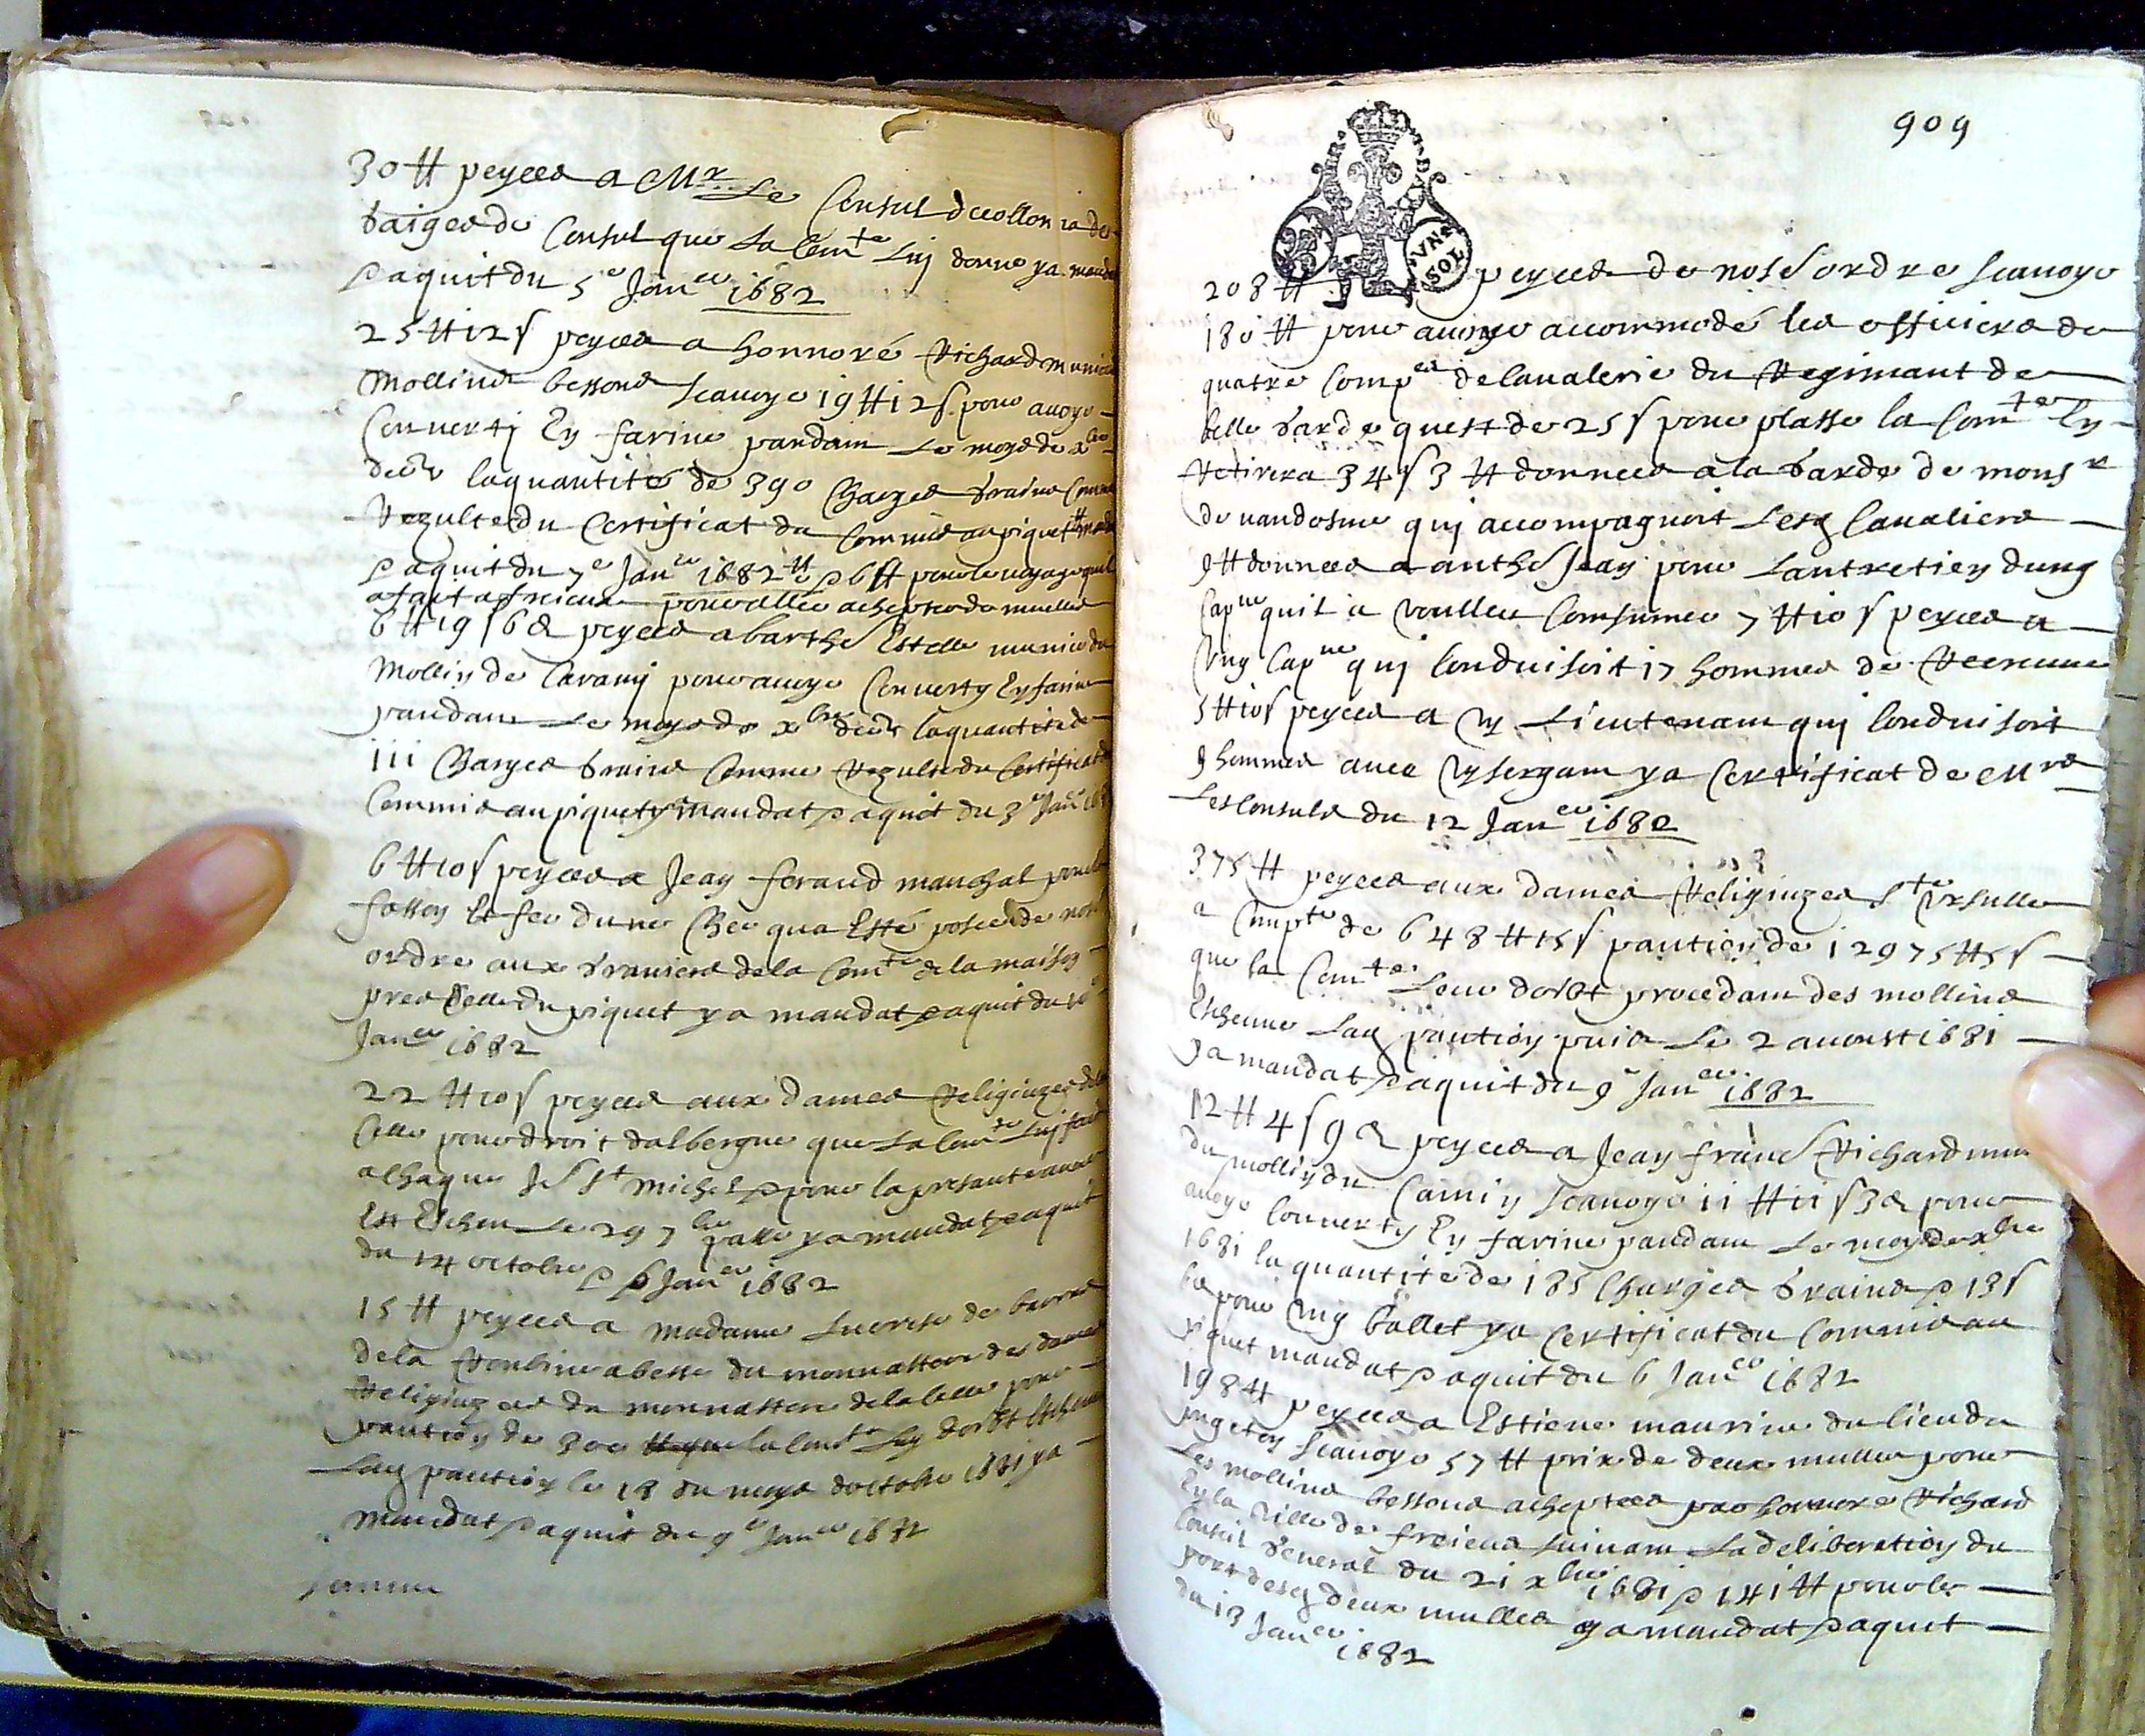 30 ₶ peyees a Mr Le Consul deollon
gaiges de Consul que La Comte Luy donne ya manda
paquit du 5e Janer 1682
25 ₶ 12 s peyees a honnoré Richard munie
mollins bessons scauoyr 19 ₶ 12 s pour auoyr
Conuerty En farine pandam Le moys de xbre
der la quantité de 390 Charges grains Comme
Rezulte du Certificat du Commis au piquet mada
paquit du 7e Janer 1682 p 6 ₶ pour le uoyage quil
a fait a freieux pour aller achepter de mulles
6 ₶ 19 s 6 d peyees a barthe Estelle munier du
Mollin de Caramy pour auoyr Conuerty En farine
pandam Le moys de xbre der la quantité de
111 Charges grains Comme Rezulte du Certificat
Commis au piquet mandat paquit du 3e Janr
6 ₶ 10 s peyees a Jean feraud marechal pour la
fasson Et fer dune Clee qua Esté posee de nostr
ordre aux graniers de la Comte de la maison
pres Celle du piquet ya mandat paquit du 10
Janer 1682
22 ₶ 10 s peyees aux dames Religiuzes de la
Celle pour droit dalbergue que La Comte Luy fait
a Chaque St michel p pour la presante annee
Est Escheu Le 29 7bre passe ya mandat paquit
du 14 octobre p 6 Janer 1682
15 ₶ peyees a madame Lucresse de
de la abesse du monnastere des dames
Religiuzes du monnastere de la Celle pour
pantion de 300 ₶ que la Comte Luy doibt Escheue
Lad pantion le 18 du moys doctobre 1681 ya
Mandat paquit du 9e Janer 1682
somme
909
VN SOL
208 ₶ peyees de nostre ordre scauoyr
180 ₶ pour auoyr accommodé les officiers de
quatre Compes de Caualerie du Regimant de
belle garde quest de 25 s pour plasse la Comte En
Retirera 34 s 3 ₶ donnees a la garde de monsr
de uandosme quj accompagnoit Lesd Caualiers
9 ₶ donnees a anthe Jean pour Lantretien dung
Capne quil a Voulleu Comsumer 7 ₶ 10 s peyees a
Vng Capne quj Conduisoit 17 hommes de Recreue
5 ₶ 10 s peyees a Vn Lieutenam quj Conduisoit
9 hommes auec Vn sergam ya Certificat de Mrs
Les Consuls du 12 Janer 1682
375 ₶ peyees aux dames Religiuzes Ste Vrsulle
a Compte de 648 ₶ 15 s pantion de 12975 ₶ 5 s
que la Comte Leur doibt procedam des mollins
Escheue Lad pantion puis Le 2 auoust 1681
ya mandat paquit du 9e Janer 1682
12 ₶ 4 s 9 d peyees a Jean frans Richard mun
du mollin du Camin scauoyr 11 ₶ 11 s 3 d pour
auoyr Conuerty En farine pandam Le moys de xbre
1681 la quantité de 185 Charges grains p 13 s
6 d pour Vng ballet ya Certificat du Commis au
piquet mandat paquit du 6 Janer 1682
198 ₶ peyees a Estiene maurine du lieu du
puget scauoyr 57 ₶ prix de deux mulles pour
Les mollins bessons acheptees par honnore Richard
En la Ville de freieus suiuam La deliberation du
Conseil general du 21 xbre 1681 p 141 ₶ pour le
port desd deux mulles ya mandat paquit
du 13 Janer 1682